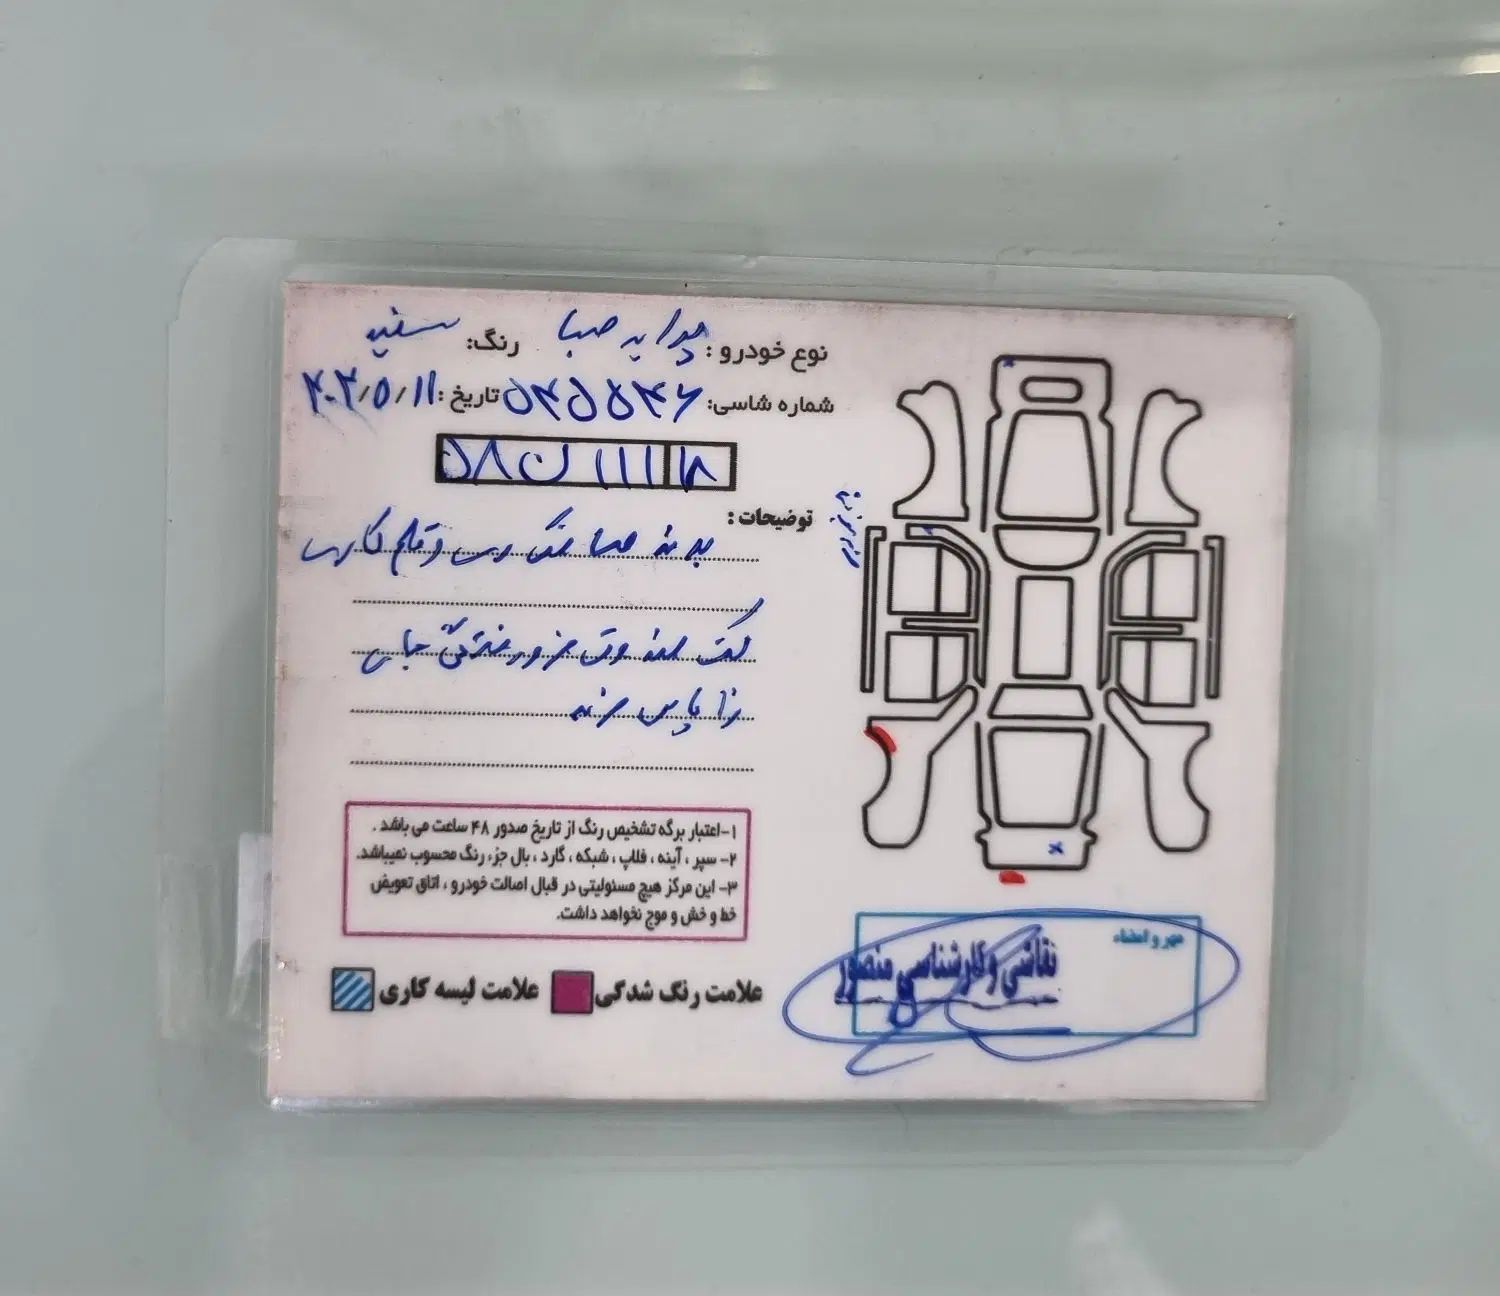 نوع خودرو : پراید صبا رنگ: سفید
شماره شاسی: ۵۴۵۵۴۶ تاریخ: ۴۰۳/۵/۱۱
۵۸ ن ۱۱۱
توضیحات :
بدنه لکه رنگ و قلم کاری
کف صندوق خوردگی جای
زاپاس
۱-اعتبار برگه تشخیص رنگ از تاریخ صدور ۴۸ ساعت می باشد .
۲- سپر ، آینه ، فلاپ ، شبکه ، گارد ، بال جزء رنگ محسوب نمیباشد.
۳- این مرکز هیچ مسئولیتی در قبال اصالت خودرو ، اتاق تعویض
خط و خش و موج نخواهد داشت.
علامت رنگ شدگی علامت لیسه کاری
مهر و امضاء
نقاشی و کارشناسی منصور